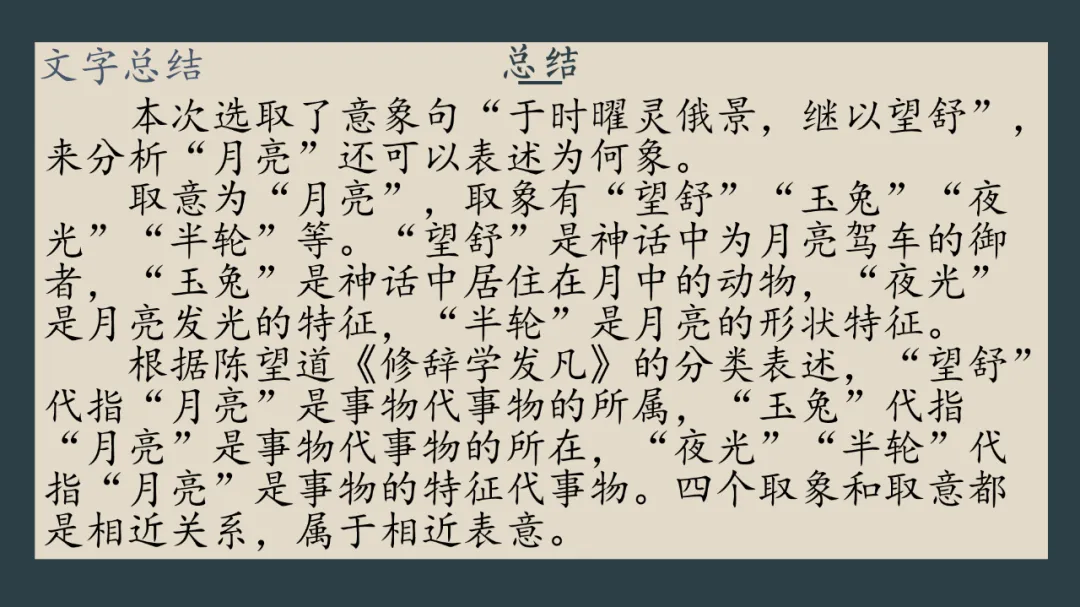 文字总结
总结
本次选取了意象句“于时曜灵俄景，继以望舒”，
来分析“月亮”还可以表述为何象。
取意为“月亮”，取象有“望舒”“玉兔”“夜
光”“半轮”等。“望舒”是神话中为月亮驾车的御
者，“玉兔”是神话中居住在月中的动物，“夜光”
是月亮发光的特征，“半轮”是月亮的形状特征。
根据陈望道《修辞学发凡》的分类表述，“望舒”
代指“月亮”是事物代事物的所属，“玉兔”代指
“月亮”是事物代事物的所在，“夜光”“半轮”代
指“月亮”是事物的特征代事物。四个取象和取意都
是相近关系，属于相近表意。